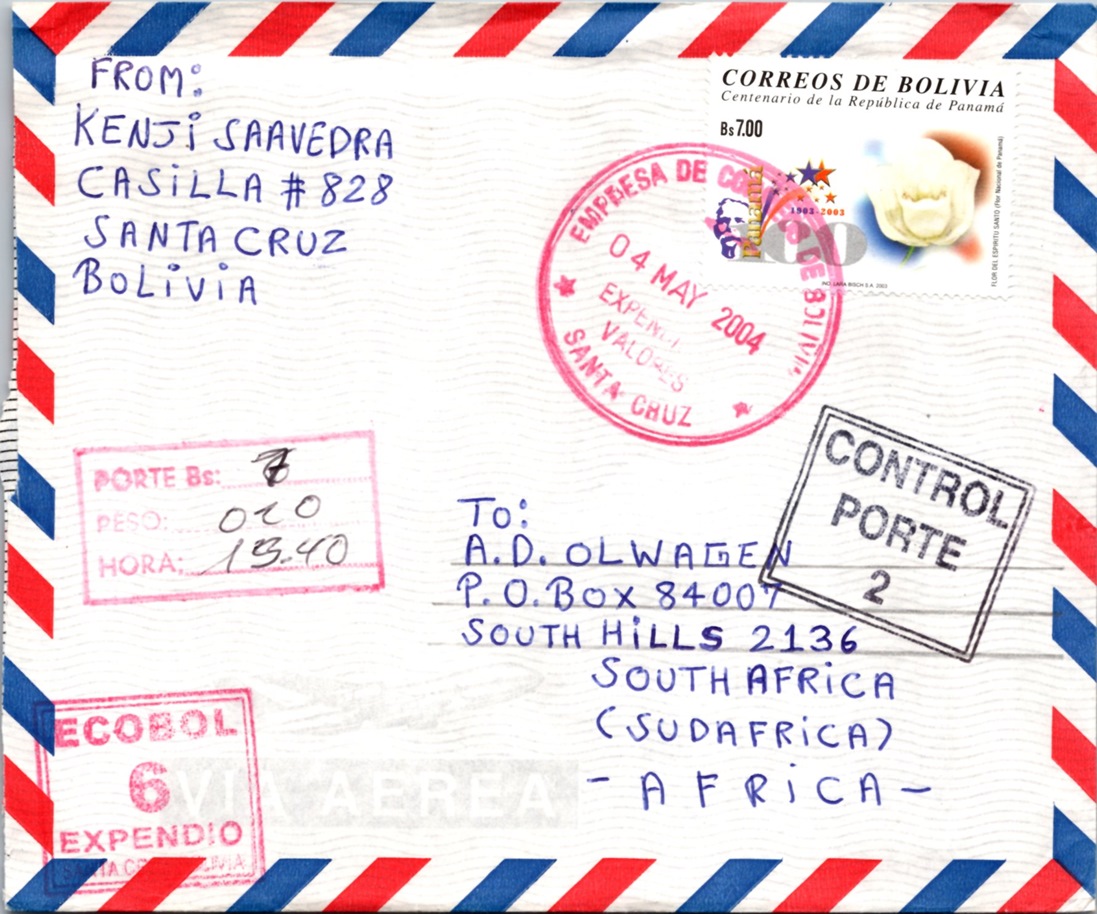 FROM:
KENJi SAAVEDRA
CASiLLA # 828
SANTA CRUZ
BOLiViA
CORREOS DE BOLIVIA
Centenario de la República de Panamá
Bs 7.00
Panamá
1903-2003
100
FLOR DEL ESPIRITU SANTO (Flor Nacional de Panamá)
LARA BISCH S.A. 2003
EMPRESA DE CORREOS DE BOLIVIA
04 MAY 2004
VALORES
SANTA CRUZ
PORTE Bs: 7
PESO: 020
HORA: 15.40
CONTROL
PORTE
2
To:
A.D. OLWAGEN
P.O. BOX 84007
SOUTH HiLLS 2136
SOUTH AFRiCA
(SUDAFRiCA)
- A F R i C A -
ECOBOL
6
EXPENDIO
SANTA CRUZ BOLIVIA
VIA AEREA